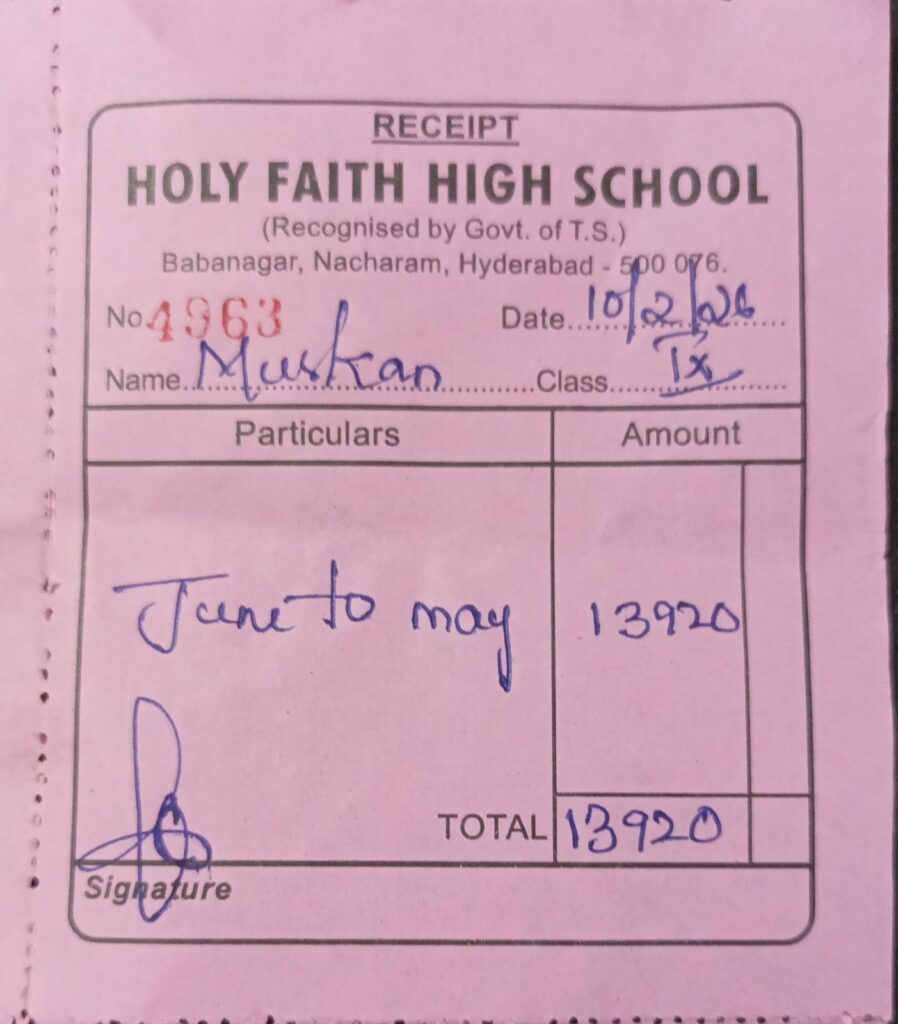 RECEIPT
HOLY FAITH HIGH SCHOOL
(Recognised by Govt. of T.S.)
Babanagar, Nacharam, Hyderabad - 500 076.
No 4963 Date 10/2/26
Name Muskan Class IX
Particulars Amount
June to may 13920
TOTAL 13920
Signature